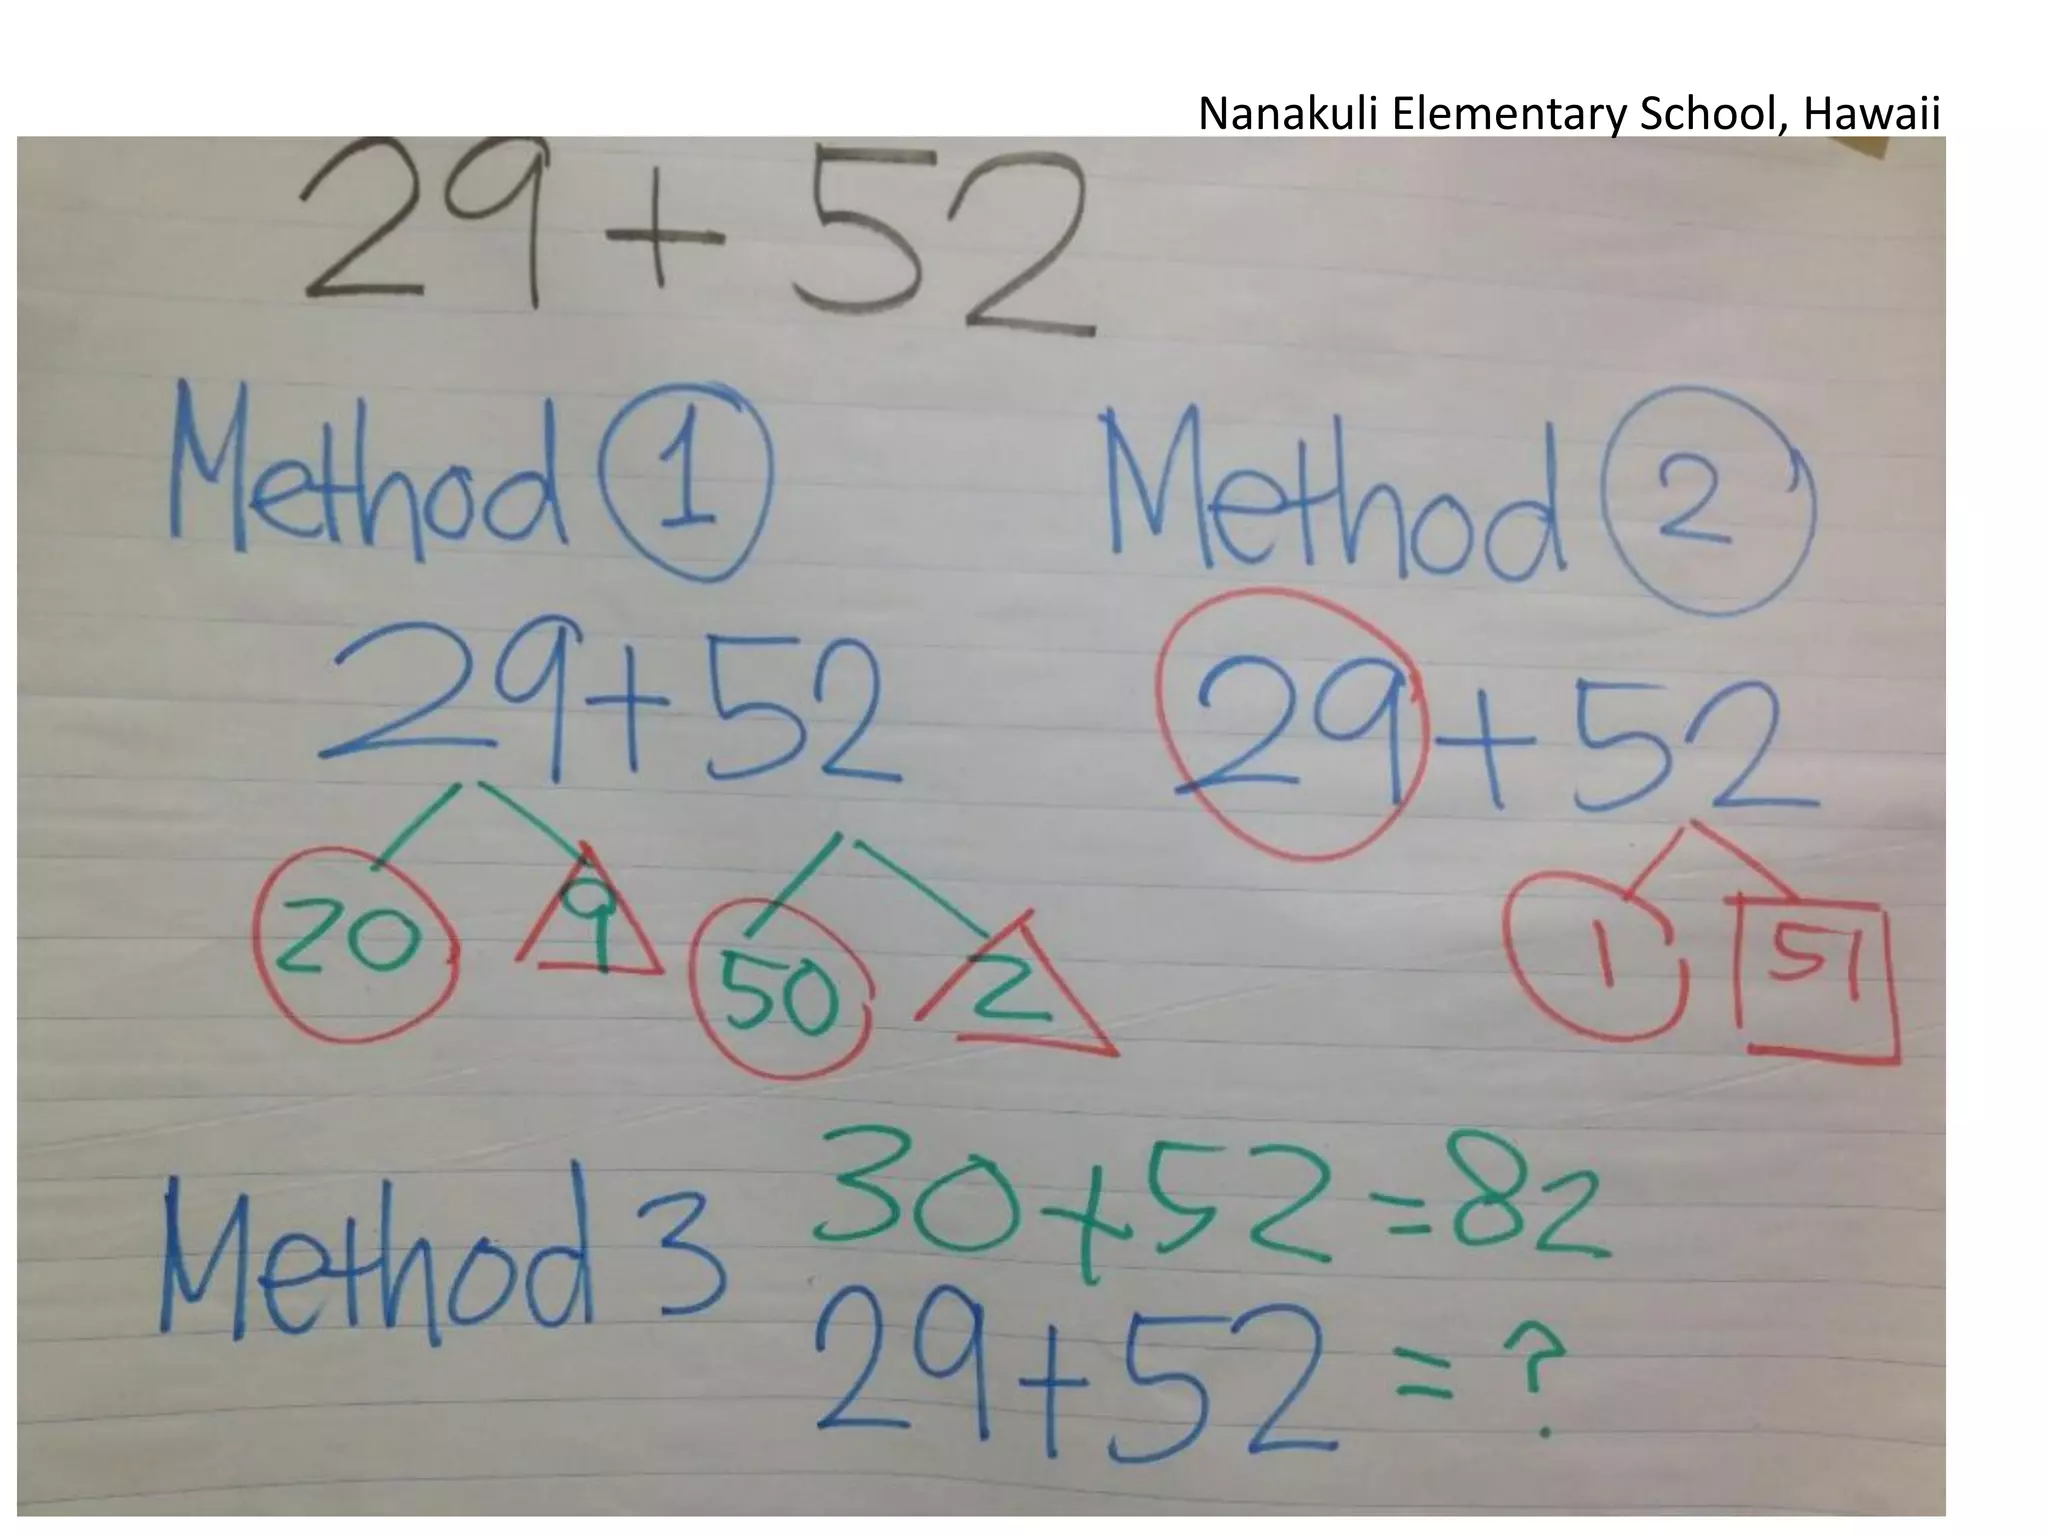 Nanakuli Elementary School, Hawaii
29 + 52
Method 1
29 + 52
20 9 50 2
Method 2
29 + 52
1 51
Method 3
30 + 52 = 82
29 + 52 = ?